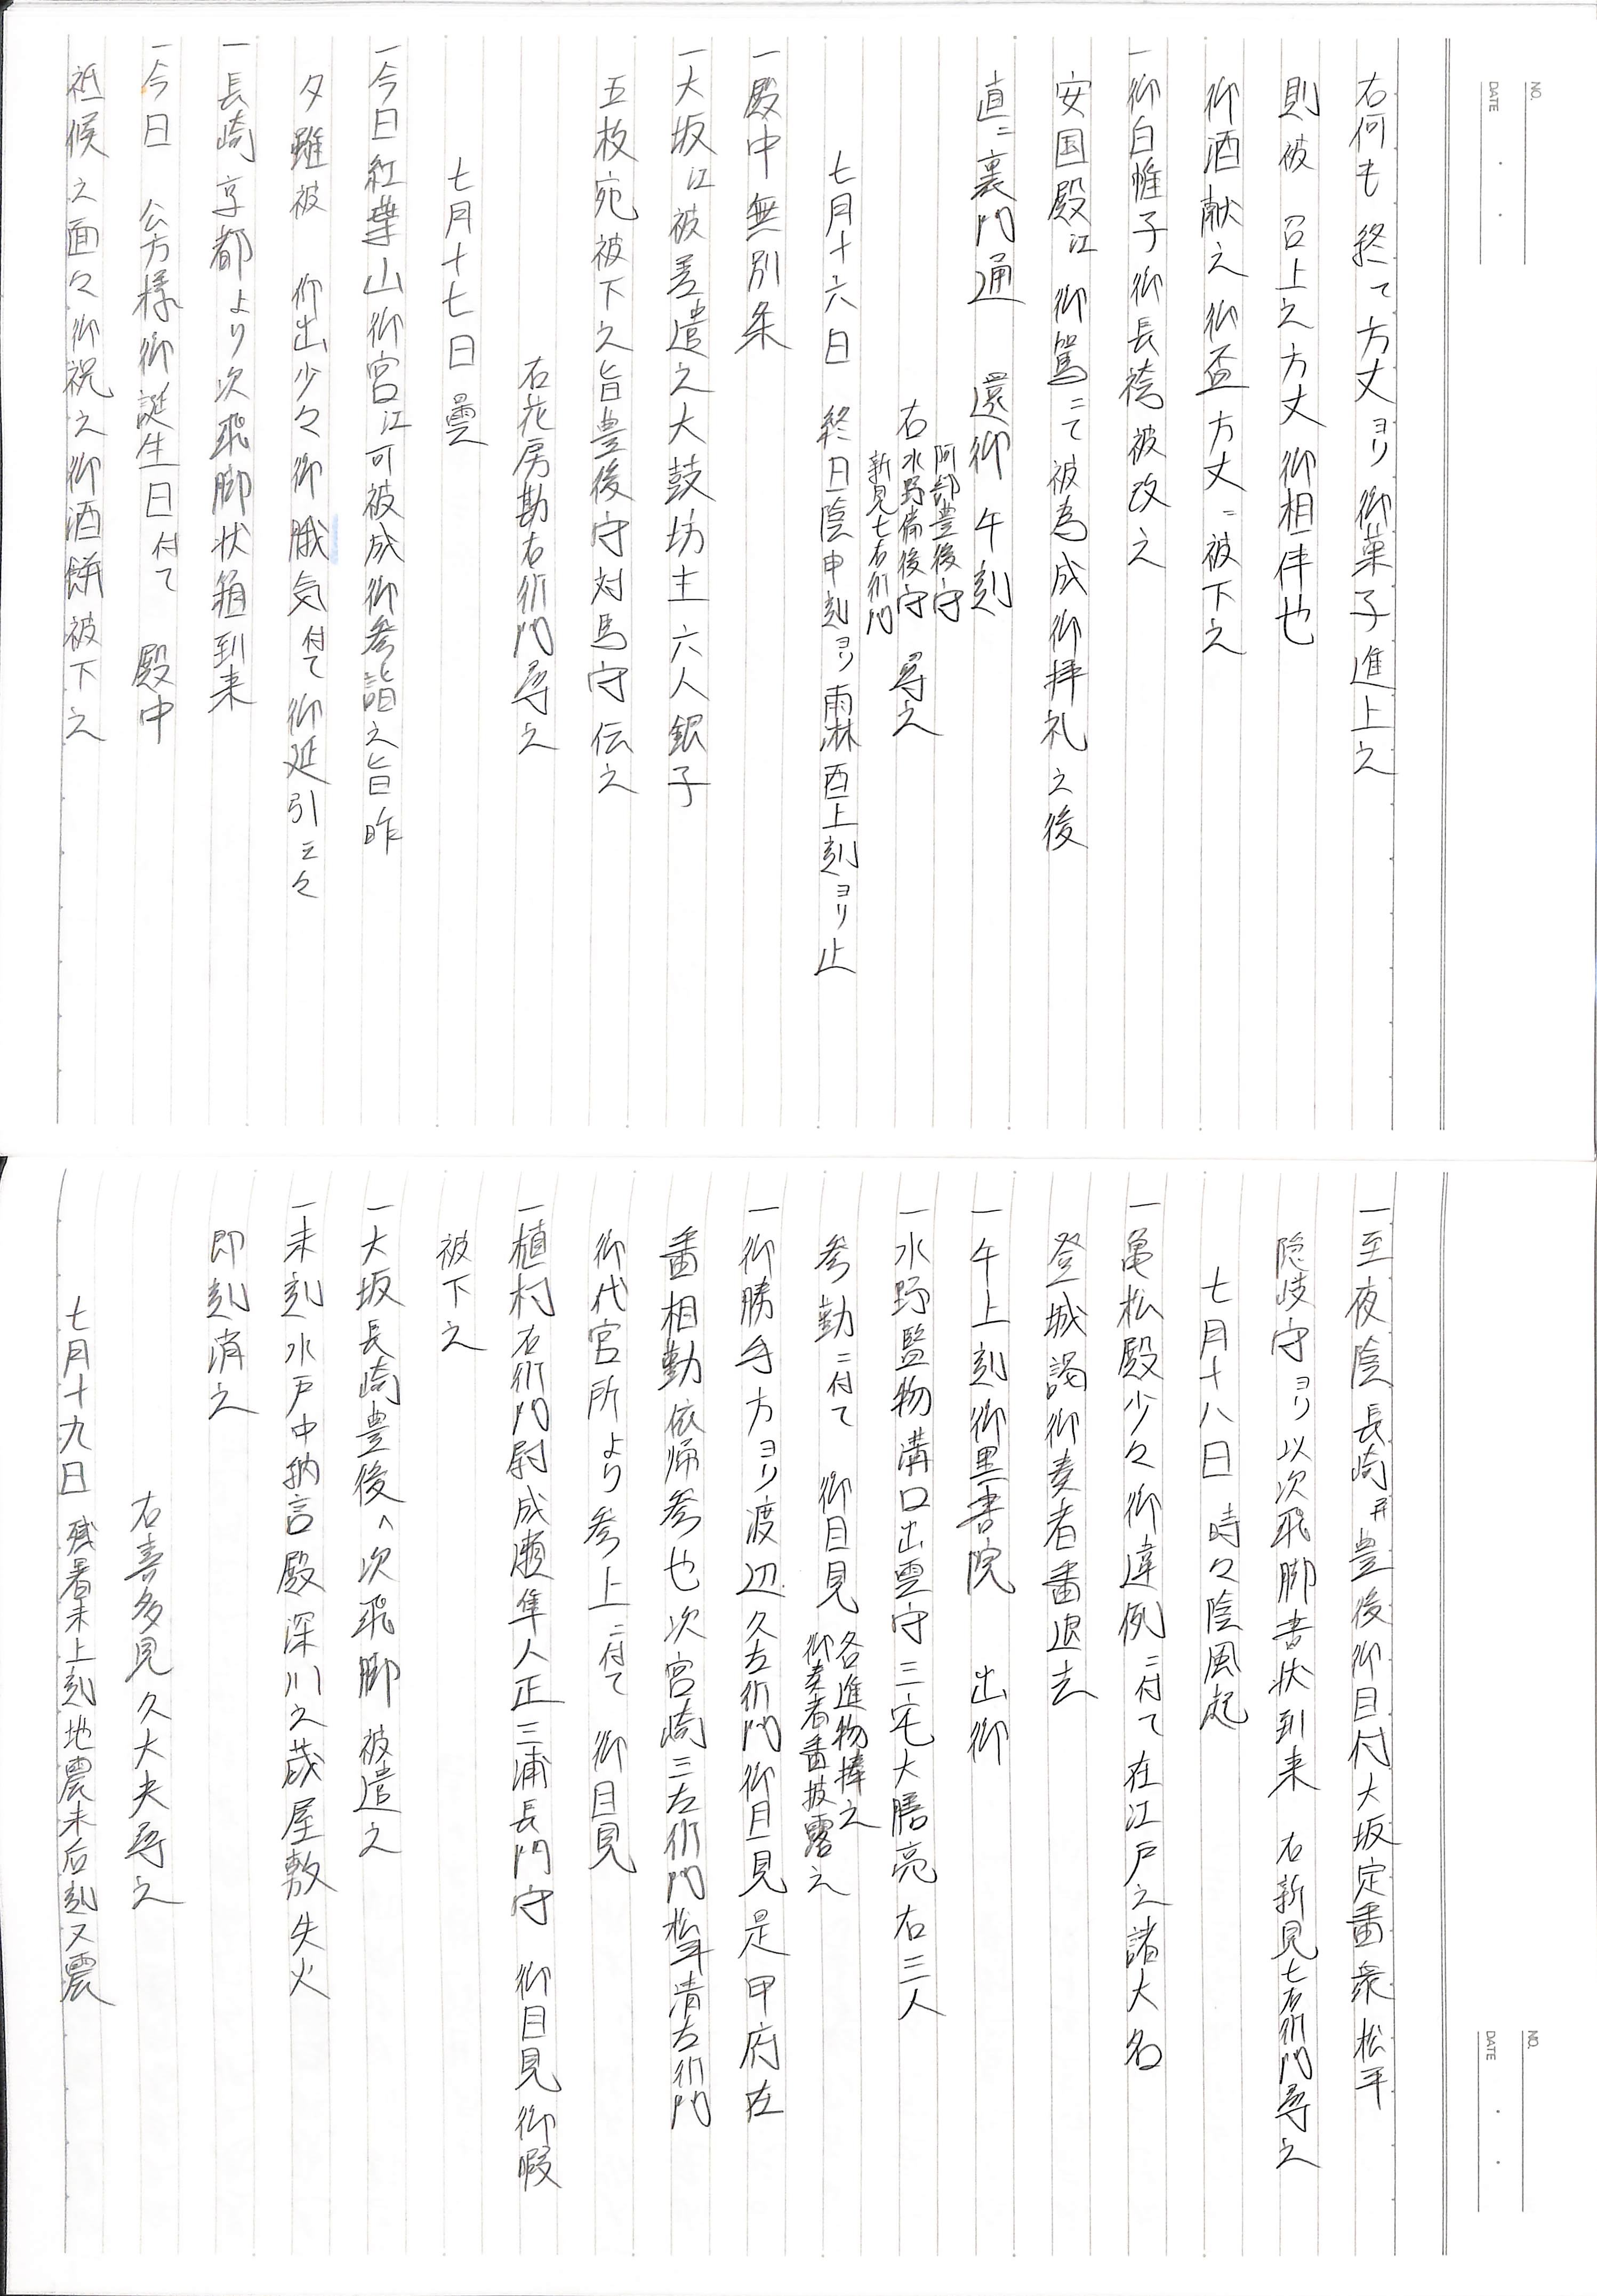 NO.
DATE
右何も終て方丈ヨリ御菓子進上之
則被 召上之方丈御相伴也
御酒献之御盃方丈ニ被下之
一御白帷子御長袴被改之
安国殿江御駕ニて被為成御拝礼之後
直ニ裏門通 還御午刻
阿部豊後守
右水野備後守 尋之
新見七右衛門
七月十六日 終日陰申刻ヨリ雨淋酉上刻ヨリ止
一殿中無別条
一大坂江被差遣之大鼓坊主六人銀子
五枚宛被下之旨豊後守対馬守伝之
右花房勘右衛門尋之
七月十七日 曇
一今日紅葉山御宮江可被成御参詣之旨昨
夕雖被 仰出少々御脹気付て御延引云々
一長崎京都より次飛脚状箱到来
一今日 公方様御誕生日付て 殿中
祗候之面々御祝之御酒餅被下之
NO.
DATE
一至夜陰長崎并豊後御目付大坂定番衆松平
隠岐守ヨリ以次飛脚書状到来 右新見七右衛門尋之
七月十八日 時々陰風起
一亀松殿少々御違例ニ付て在江戸之諸大名
登城謁御奏者番退去
一午上刻御黒書院 出御
一水野監物溝口出雲守三宅大膳亮右三人
参勤ニ付て 御目見 各進物捧之
御奏者番披露之
一御勝手方ヨリ渡辺久左衛門御目見是甲府在
番相勤依帰参也次宮崎三左衛門松平清左衛門
御代官所より参上ニ付て 御目見
一植村右衛門尉成瀬隼人正三浦長門守 御目見御暇
被下之
一大坂長崎豊後へ次飛脚被遣之
一未刻水戸中納言殿深川之蔵屋敷失火
即刻消之
右喜多見久大夫尋之
七月十九日 残暑未上刻地震未后刻又震